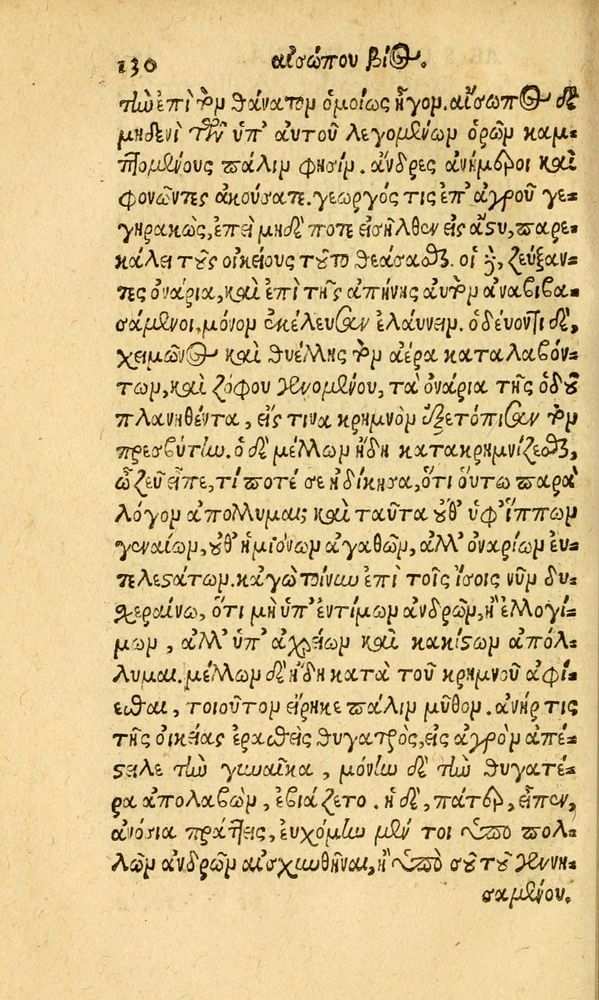 130 αἰσώπου βί©.
τὴν ἐπὶ τὸν θάνατον ὁμοίως ἦγον. αἴσωπος δὲ
μηδενὶ τῶν ὑπ' αὐτοῦ λεγομένων ὁρῶν καμ-
πτομένους πάλιν φησίν. ἄνδρες ἀνήμεροι καὶ
φονῶντες ἀκούσατε. γεωργός τις ἐπ' ἀγροῦ γε-
γηρακὼς, ἐπεὶ μηδέ ποτε εἰσῆλθεν εἰς ἄστυ, παρε-
κάλει τοὺς οἰκείους τοῦτο θεάσασθαι. οἱ δὲ, ζεύξαν-
τες ὀνάρια, καὶ ἐπὶ τῆς ἀπήνης αὐτὸν ἀναβιβα-
σάμενοι, μόνον ἐκέλευσαν ἐλαύνειν. ὁδεύοντι δὲ,
χειμῶνος καὶ θυέλλης τὸν ἀέρα καταλαβόν-
των, καὶ ζόφου γενομένου, τὰ ὀνάρια τῆς ὁδοῦ
πλανηθέντα, εἴς τινα κρημνὸν ἐξετόπισαν τὸν
πρεσβύτην. ὁ δὲ μέλλων ἤδη κατακρημνίζεσθαι,
ὦ ζεῦ εἶπε, τί ποτέ σε ἠδίκησα, ὅτι οὕτω παρα
λόγον ἀπόλλυμαι; καὶ ταῦτα οὔθ' ὑφ' ἵππων
γενναίων, οὔθ' ἡμιόνων ἀγαθῶν, ἀλλ' ὀναρίων εὐ-
τελεστάτων. κἀγὼ τοίνυν ἐπὶ τοῖς ἴσοις νῦν δυ-
χεραίνω, ὅτι μὴ ὑπ' ἐντίμων ἀνδρῶν, ἢ ἐλλογί-
μων, ἀλλ' ὑπ' ἀχρείων καὶ κακίστων ἀπόλ-
λυμαι. μέλλων δὲ ἤδη κατὰ τοῦ κρημνοῦ ἀφί-
εσθαι, τοιοῦτον εἴρηκε πάλιν μῦθον. ἀνήρ τις
τῆς οἰκείας ἐρασθεὶς θυγατρὸς, εἰς ἀγρὸν ἀπέ-
στειλε τὴν γυναῖκα, μόνην δὲ τὴν θυγατέ-
ρα ἀπολαβὼν, ἐβιάζετο. ἡ δὲ, πάτερ, εἶπεν,
ἀνόσια πράττεις, εὐχόμην μέν τοι ὑπὸ πολ-
λῶν ἀνδρῶν αἰσχυνθῆναι, ἢ ὑπὸ σοῦ τοῦ γεννη-
σαμένου.